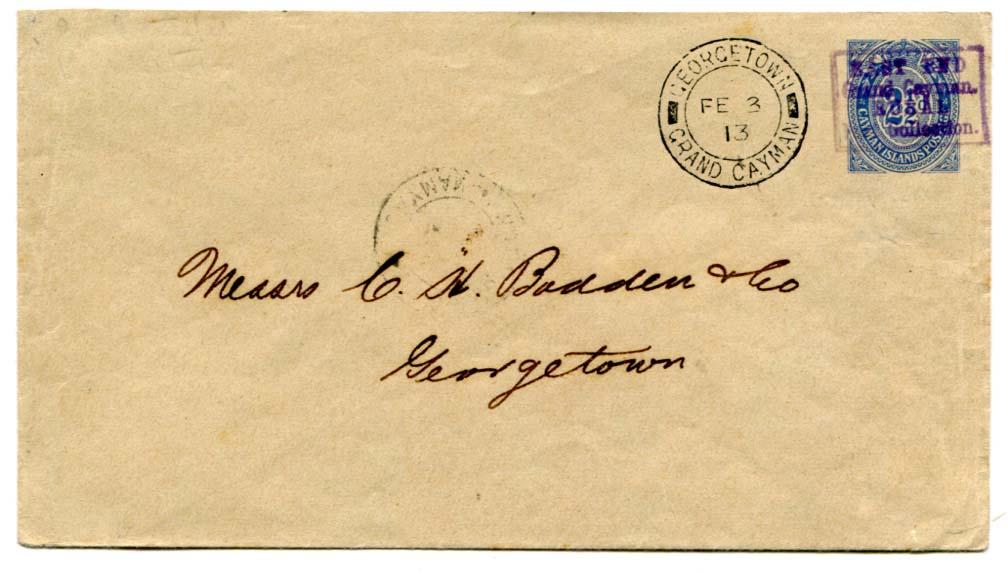 GEORGETOWN
FE 3
13
GRAND CAYMAN
EAST END
Grand Cayman.
RURAL
Collection.
2½
CAYMAN ISLANDS POSTAGE
Messrs C. H. Bodden & Co
Georgetown